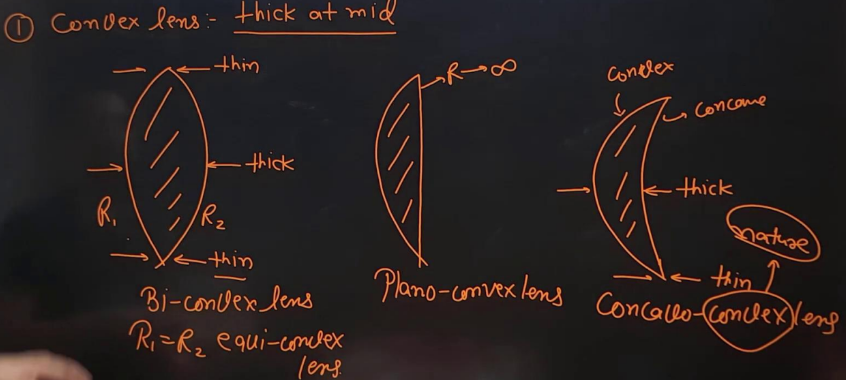 ① Convex lens:- thick at mid
thin
thick
R₁
R₂
thin
Bi-convex lens
R₁=R₂ equi-convex
lens
R→∞
Plano-convex lens
convex
concave
thick
thin
nature
Concavo-convex lens